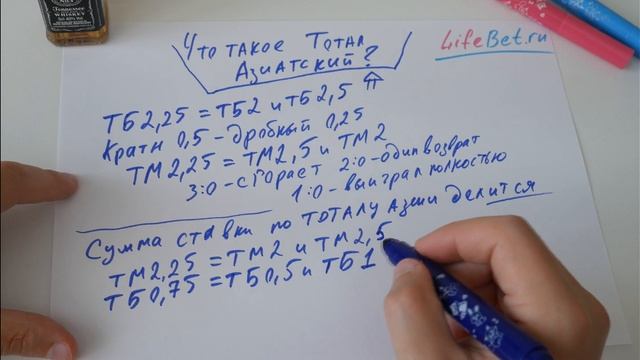 Tennessee
WHISKEY
LifeBet.ru
Что такое Тотал
Азиатский?
ТБ2,25 = ТБ2 и ТБ2,5
Кратн 0,5 - дробный 0,25
ТМ2,25 = ТМ2,5 и ТМ2
3:0 - сгорает 2:0 - один возврат
1:0 - выиграл полностью
Сумма ставки по тоталу Азии делится
ТМ2,25 = ТМ2 и ТМ2,5
ТБ0,75 = ТБ0,5 и ТБ1